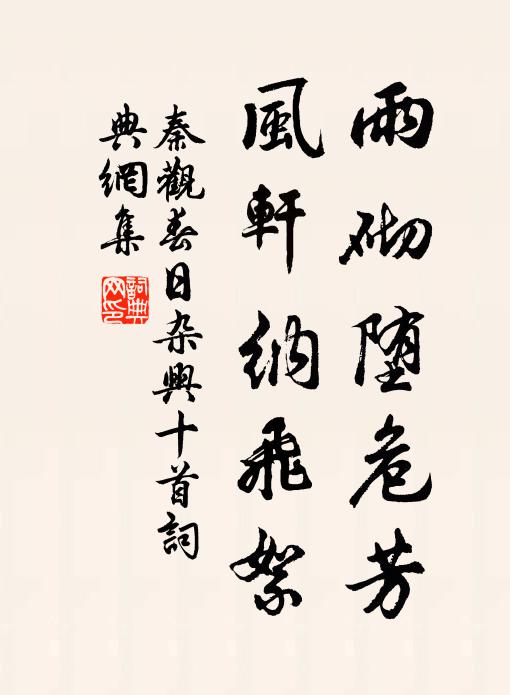 雨砌堕危芳
風軒納飛絮
秦觀春日杂興十首詞
典網集
詞典
网印